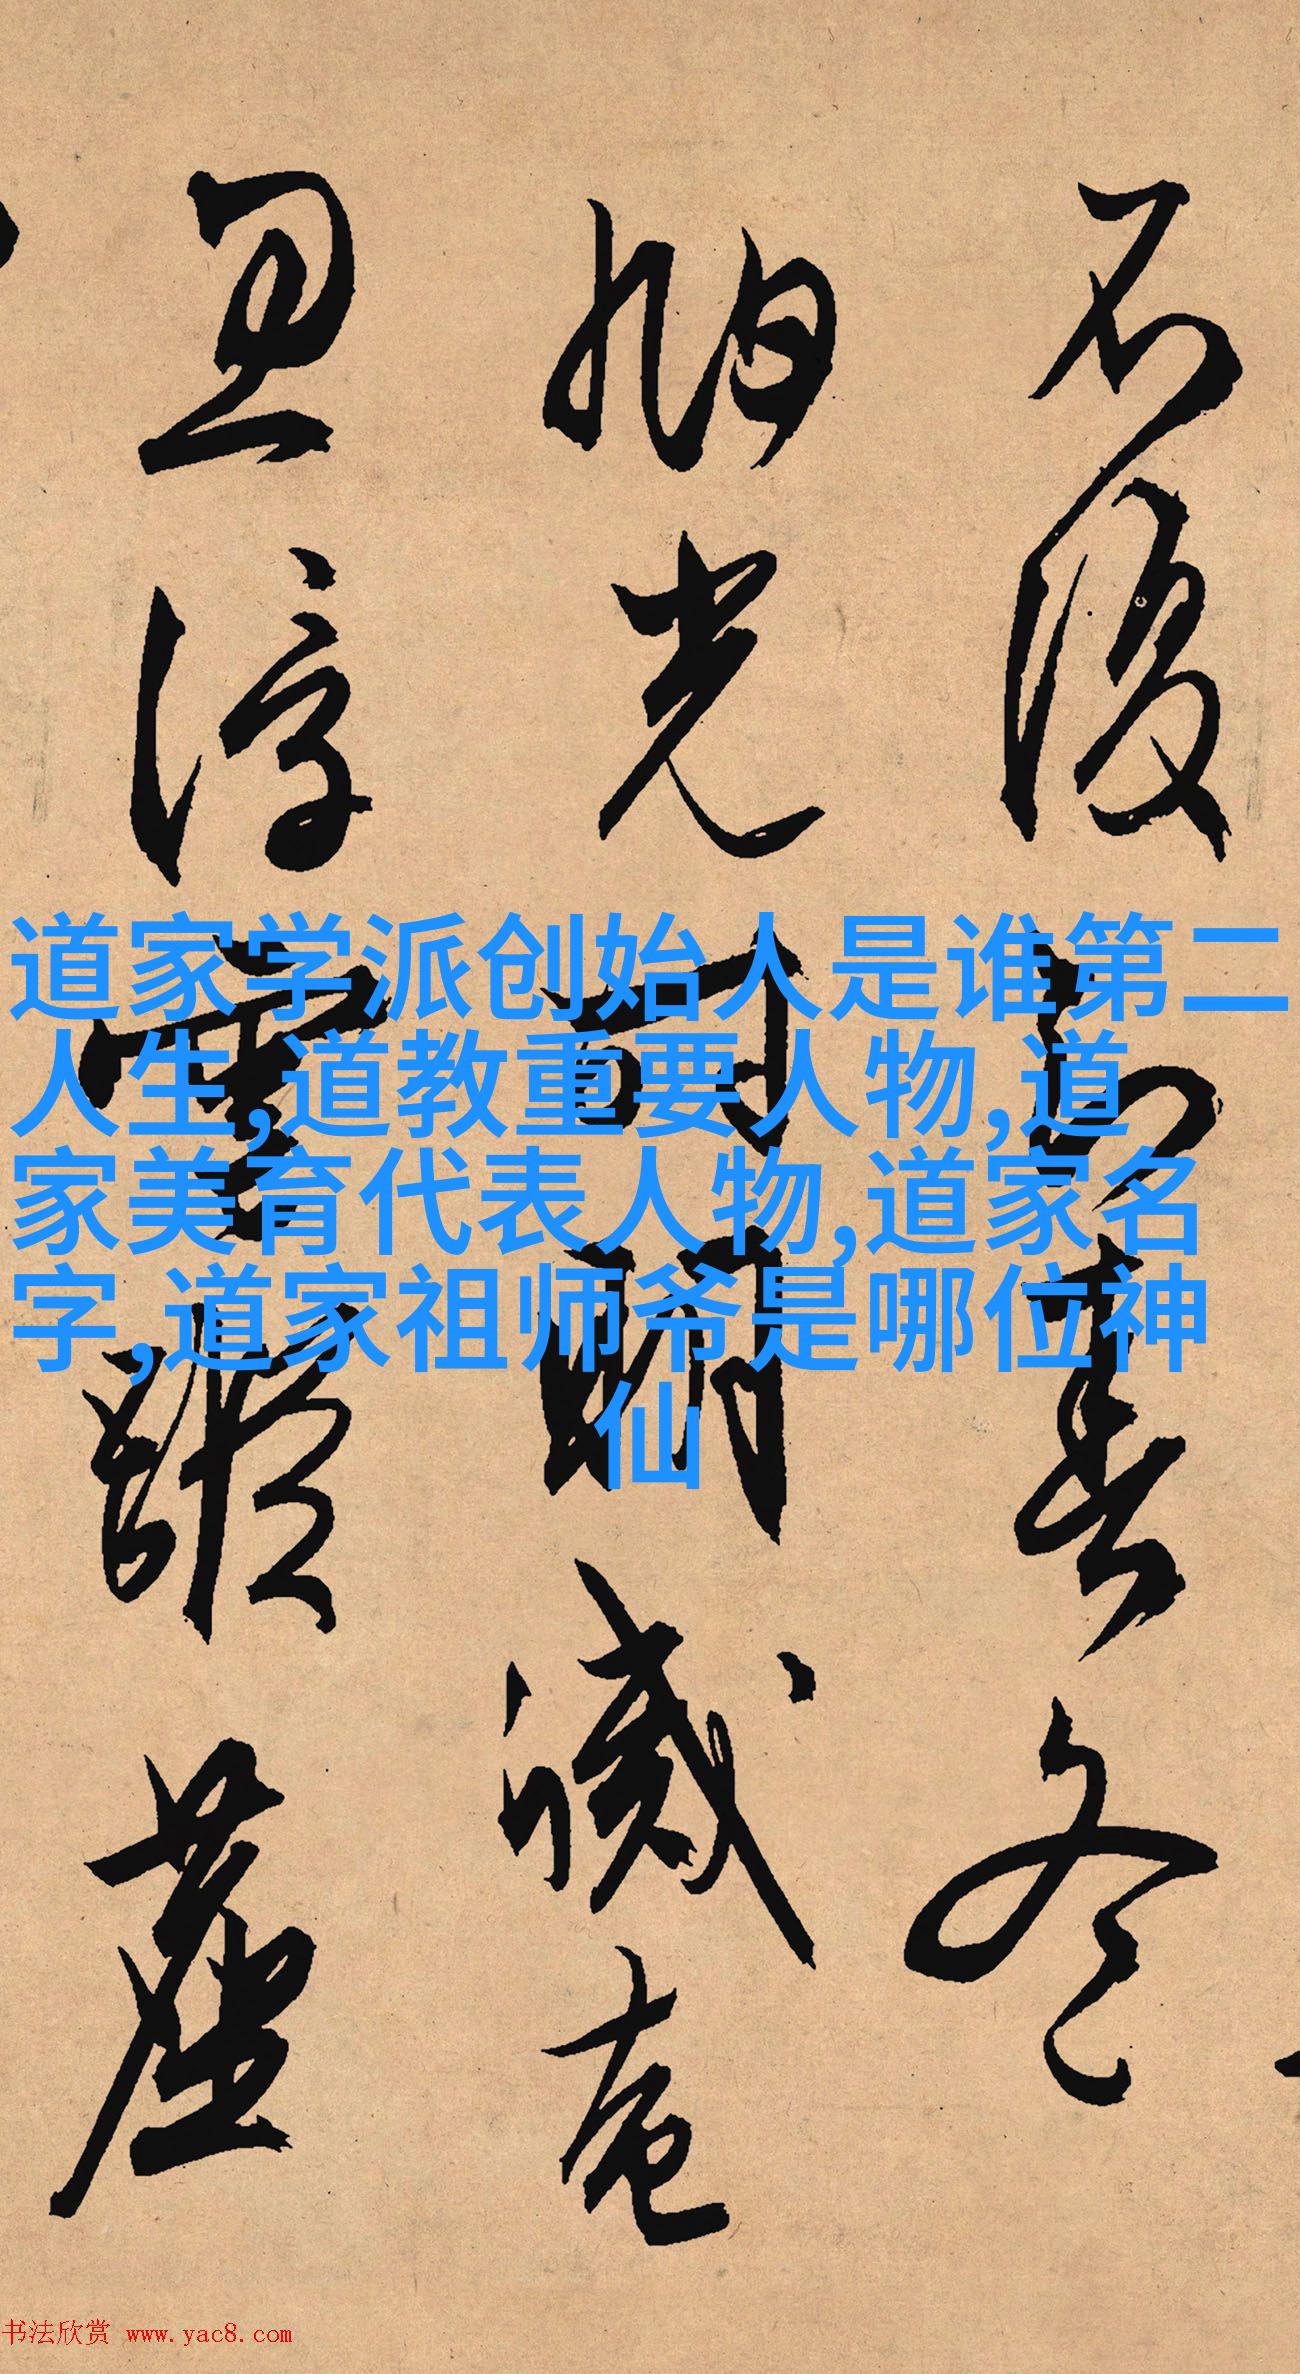 道家学派创始人是谁第二
人生,道教重要人物,道
家美育代表人物,道家名
字,道家祖师爷是哪位神
仙
不復知春冬
光明滅奄
忽雲
书法欣赏 www.yac8.com